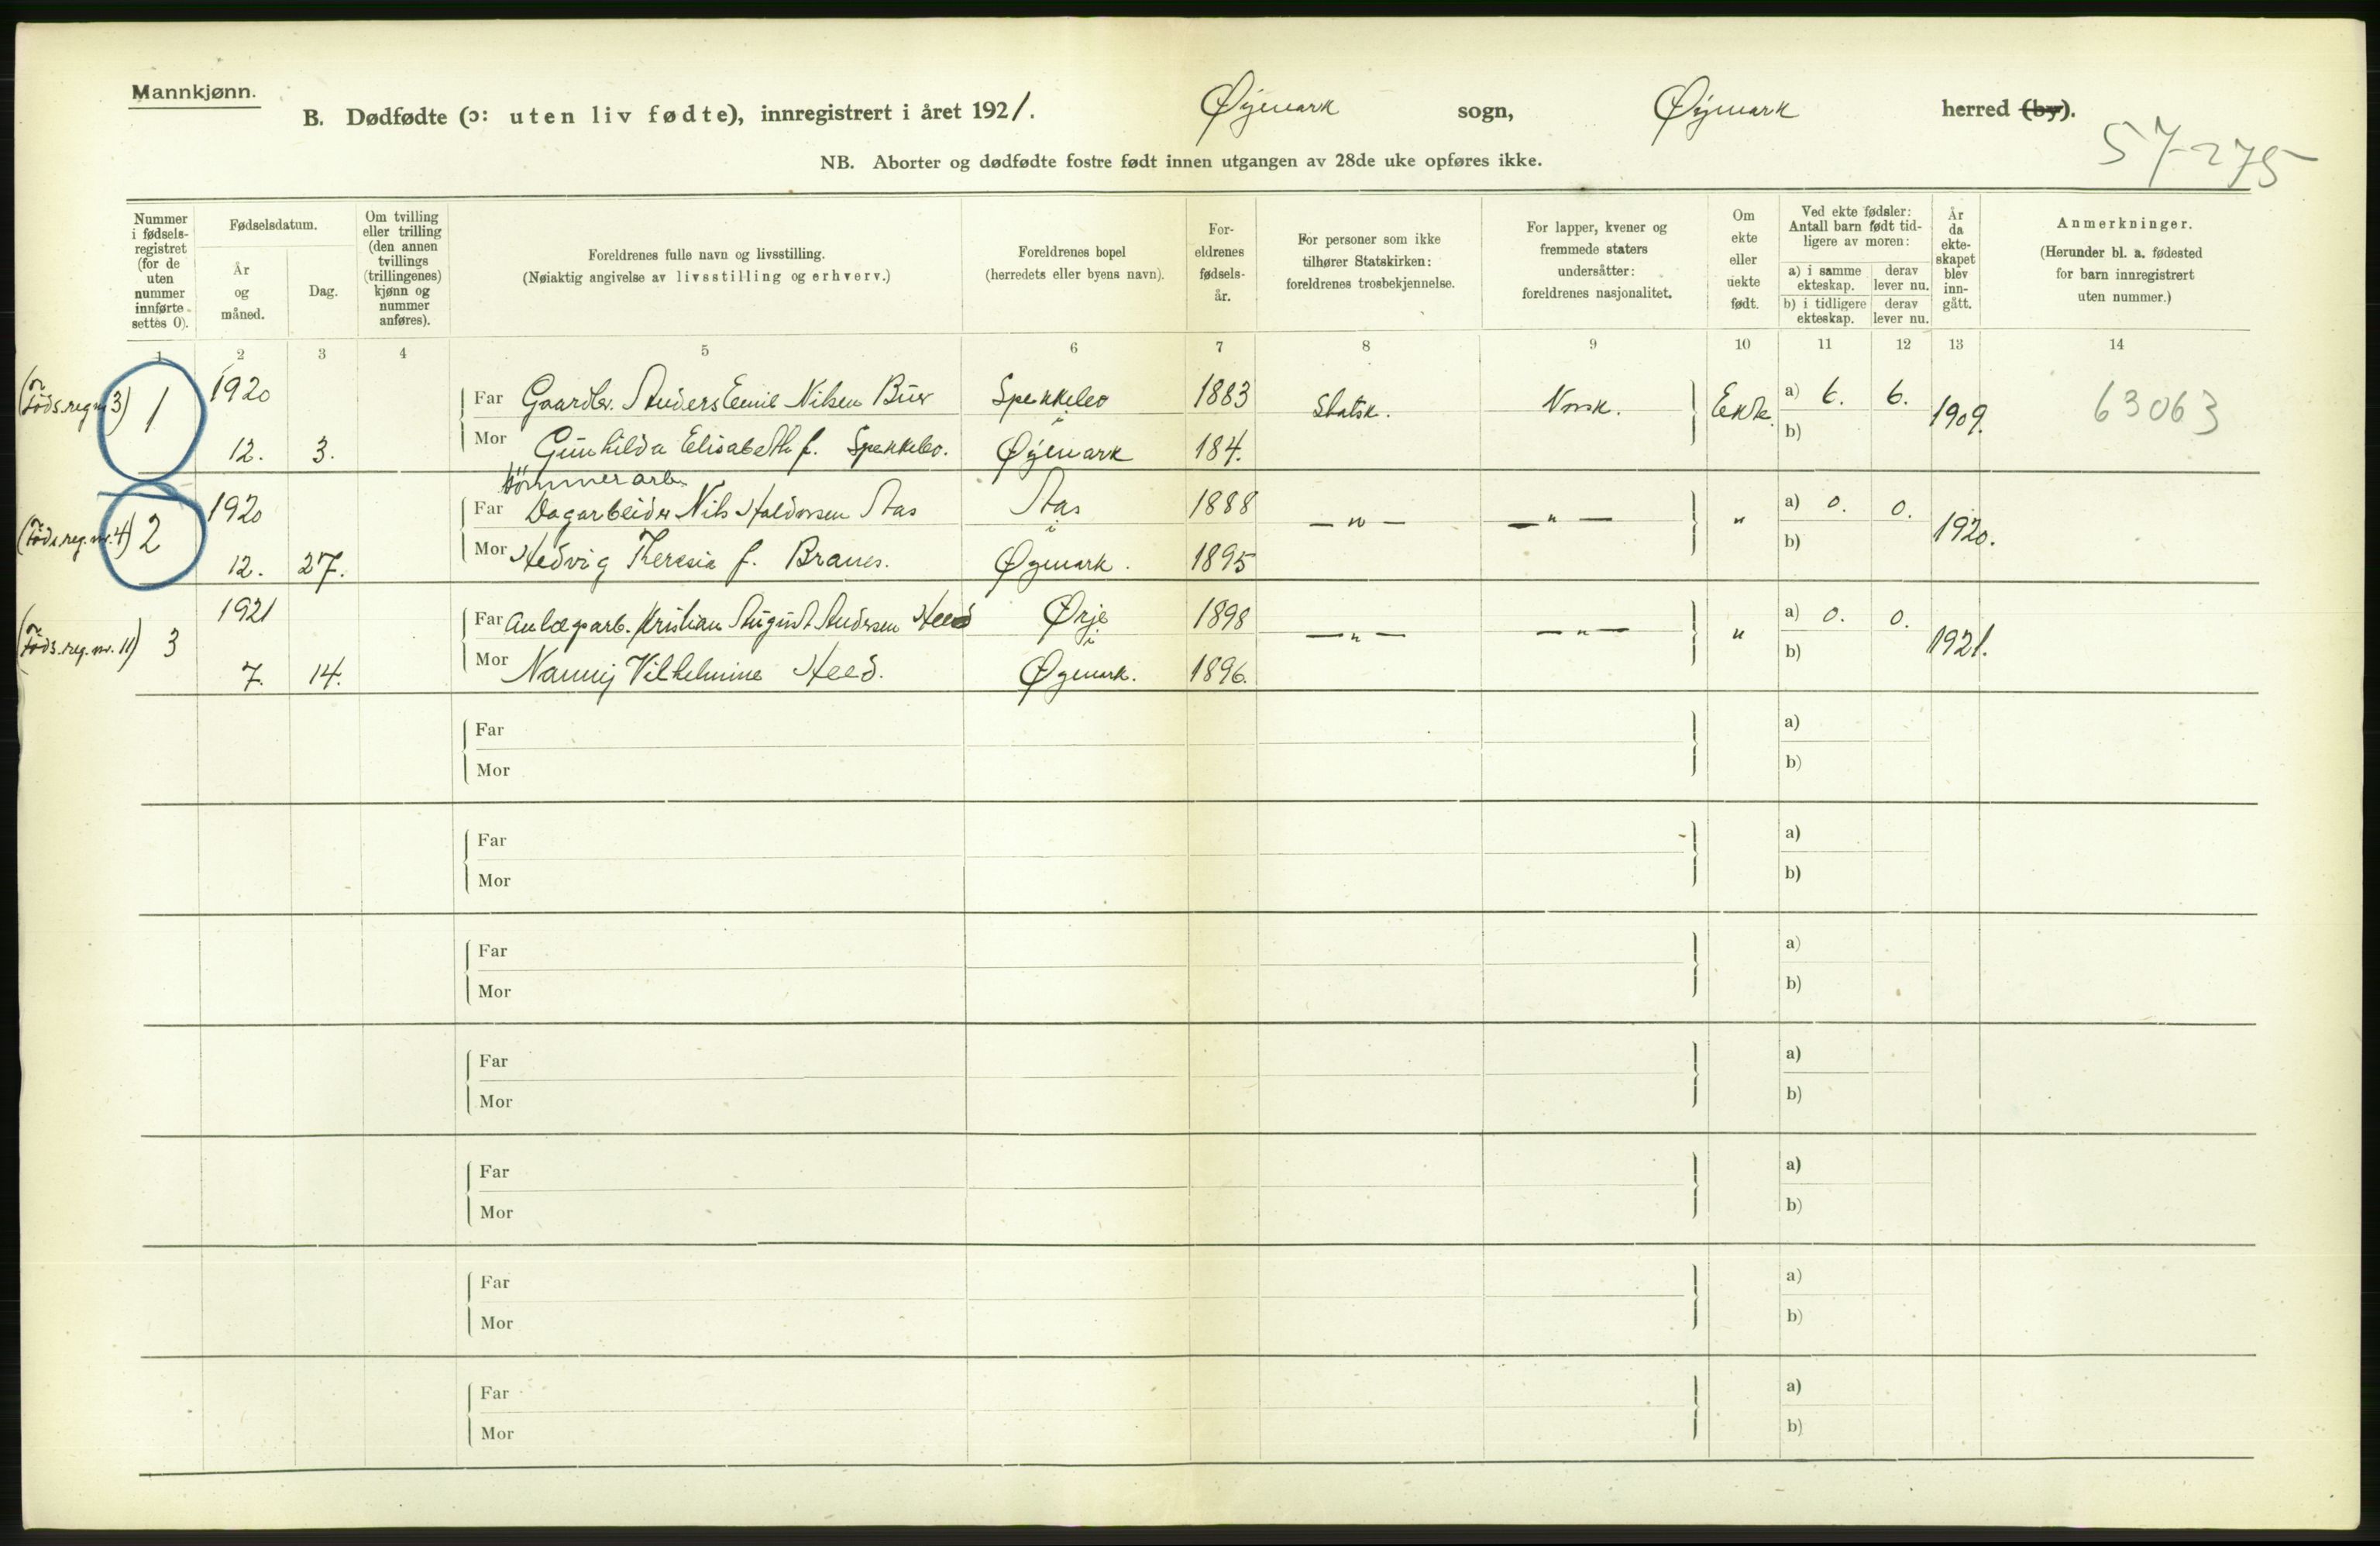 Mannkjønn.
B. Dødfødte (ɔ: uten liv fødte), innregistrert i året 1921. Øymark sogn, Øymark herred (by).
57-275
NB. Aborter og dødfødte fostre født innen utgangen av 28de uke opføres ikke.
Nummer i fødsels-registret (for de uten nummer innførte settes 0).
Fødselsdatum.
År og måned.
Dag.
Om tvilling eller trilling (den annen tvillings (trillingenes) kjønn og nummer anføres).
Foreldrenes fulle navn og livsstilling.
(Nøiaktig angivelse av livsstilling og erhverv.)
Foreldrenes bopel
(herredets eller byens navn).
For-eldrenes fødsels-år.
For personer som ikke tilhører Statskirken: foreldrenes trosbekjennelse.
For lapper, kvener og fremmede staters undersåtter: foreldrenes nasjonalitet.
Om ekte eller uekte født.
Ved ekte fødsler: Antall barn født tid-ligere av moren:
a) i samme ekteskap. derav lever nu.
b) i tidligere ekteskap. derav lever nu.
År da ekte-skapet blev inn-gått.
Anmerkninger.
(Herunder bl. a. fødested for barn innregistrert uten nummer.)
1 2 3 4 5 6 7 8 9 10 11 12 13 14
(Föds.reg.nr 3) 1 1920 Far Gaardbr. Anders Emil Nilsen Buer Spekkebo 1883 Statsk. Norsk. Ekte. a) 6. 6. 1909. 63063
12. 3. Mor Gunhilda Elisabeth f. Spekkebo. i Øymark 184. b)
tömmerarb.
(Föds.reg.nr. 4) 2 1920 Far Dagarbeider Nils Haldorsen Aas Aas 1888 — " — — " — " a) 0. 0. 1920.
12. 27. Mor Hedvig Theresia f. Branes. i Øymark. 1895 b)
(Föds.reg.nr. 11) 3 1921 Far Anlægsarb. Kristian August Andersen Heed Ørje 1898 — " — — " — " a) 0. 0. 1921.
7. 14. Mor Nanny Vilhelmine Heed. i Øymark. 1896. b)
Far a)
Mor b)
Far a)
Mor b)
Far a)
Mor b)
Far a)
Mor b)
Far a)
Mor b)
Far a)
Mor b)
Far a)
Mor b)